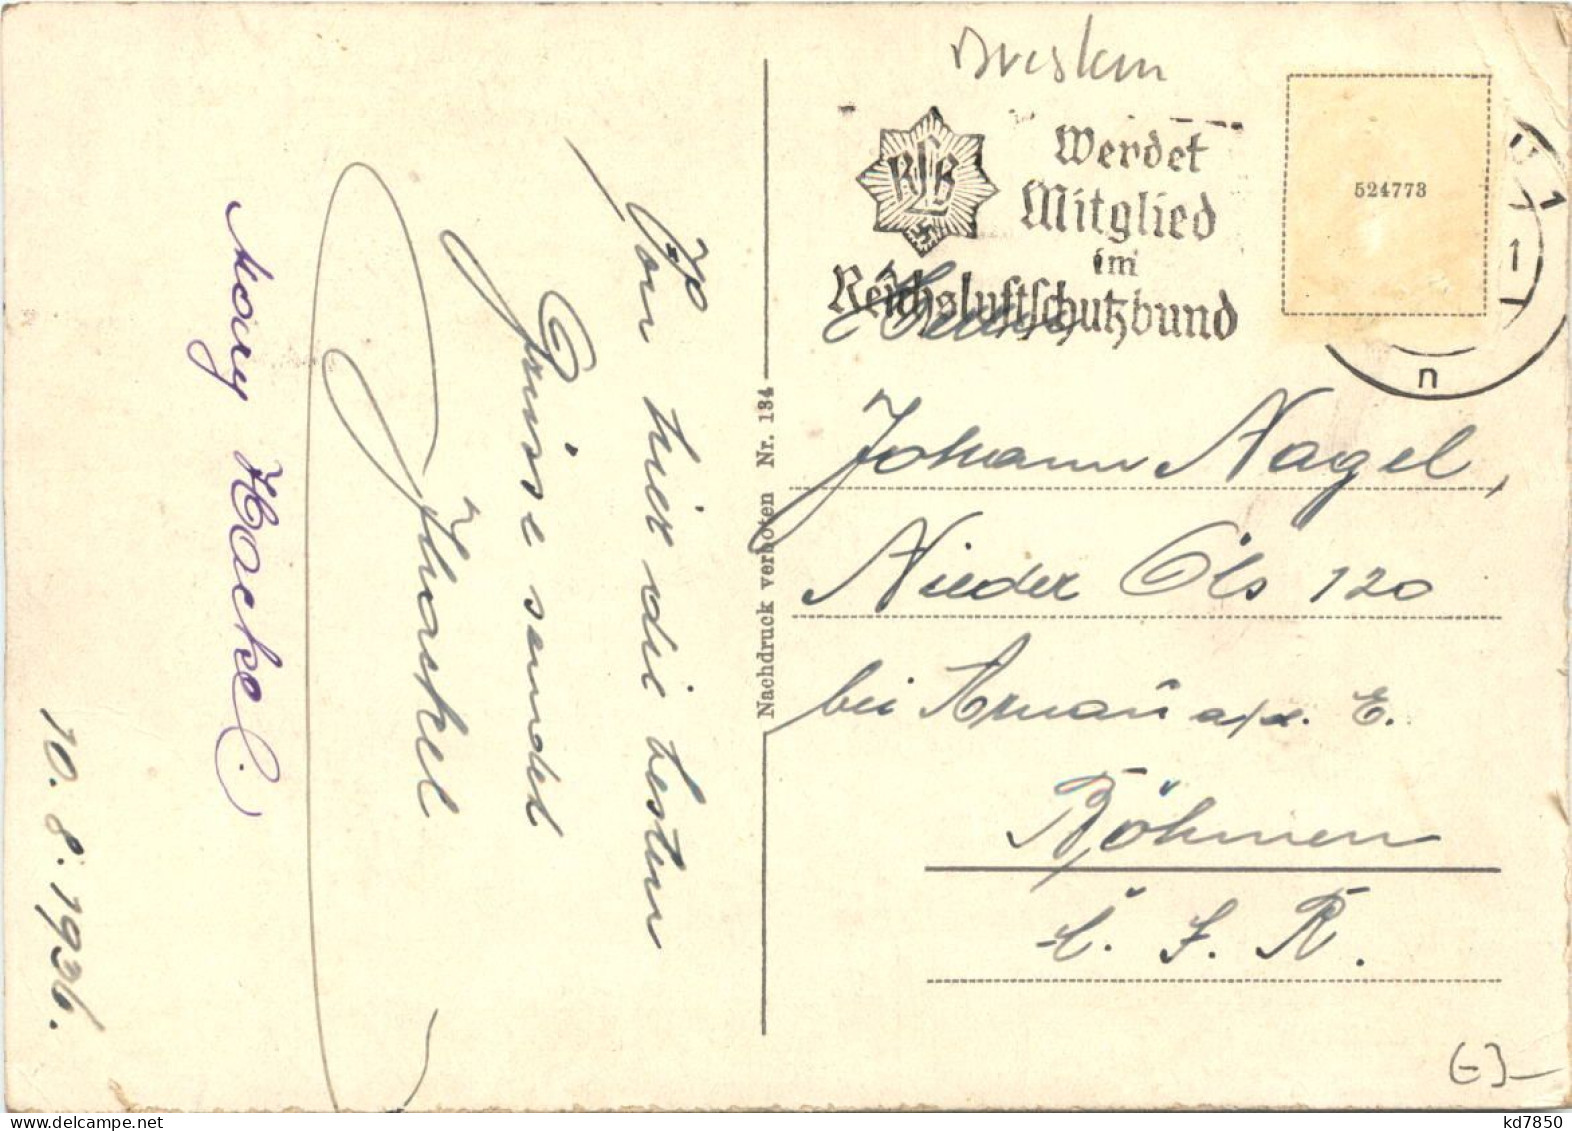 Von hier die besten
Grüsse sendet
10.8.1936.
Nachdruck verboten Nr. 134
RLB
Werdet
Mitglied
im
Reichsluftschutzbund
524773
1
1
n
Johann Nagel,
Nieder Öls 120
bei Arnau a/d. E.
Böhmen
Č. S. R.
kd7850